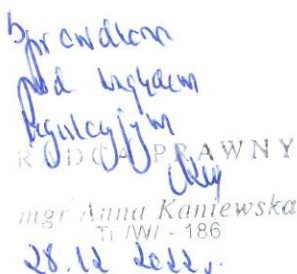 Sprawdzam
pod względem
legislacyjnym
RADCA PRAWNY
mgr Anna Kaniewska
TL/W/ - 186
28.12 2022r.